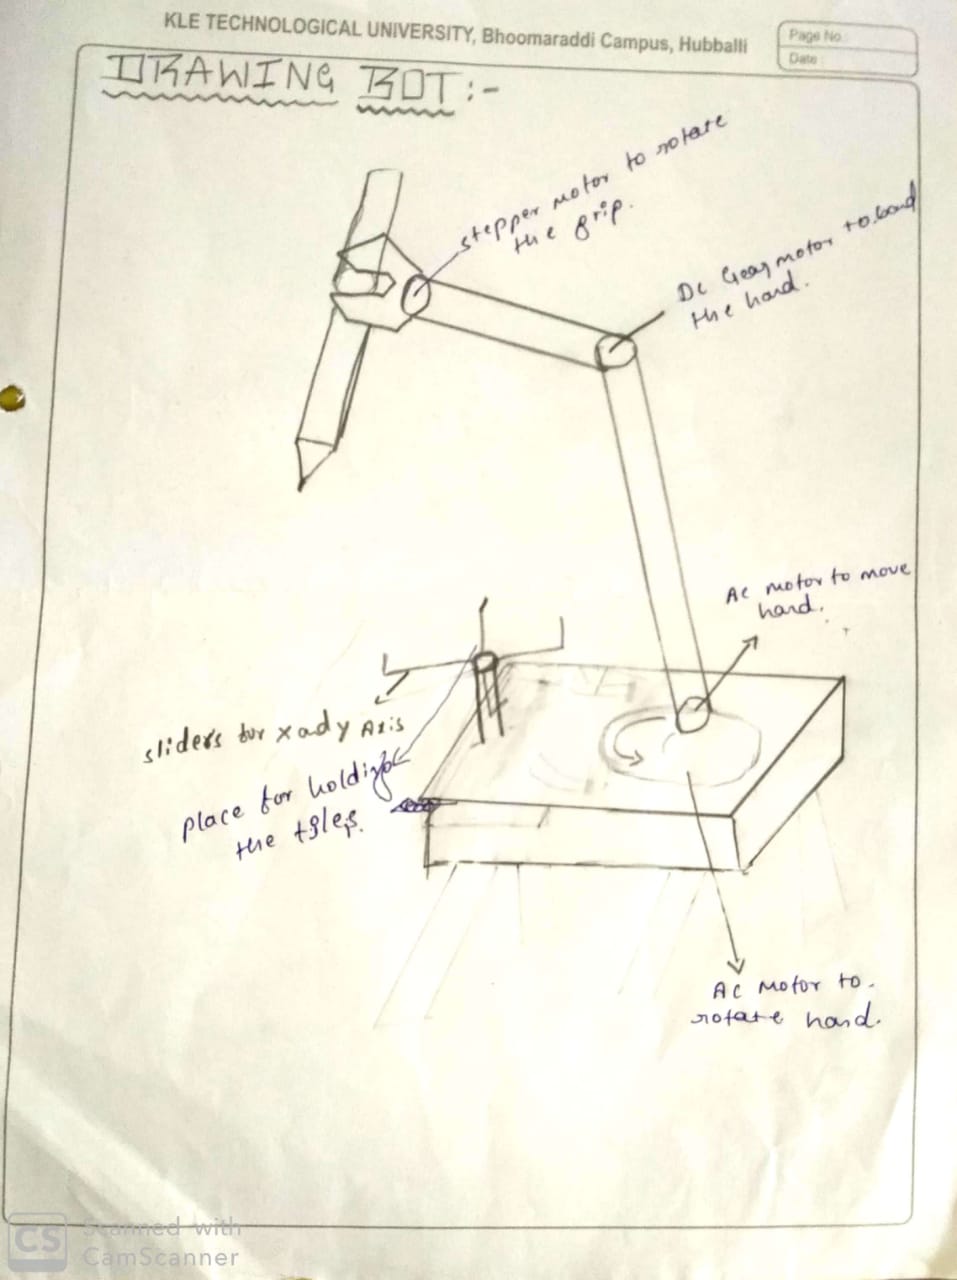 KLE TECHNOLOGICAL UNIVERSITY, Bhoomaraddi Campus, Hubballi
Page No.:
Date :
DRAWING BOT :-
stepper motor to rotate
the grip.
DC Gear motor to bend
the hand.
AC motor to move
hand.
sliders for x ady Axis
place for holding
the tiles.
AC Motor to
rotate hand.
CS
Scanned with
CamScanner